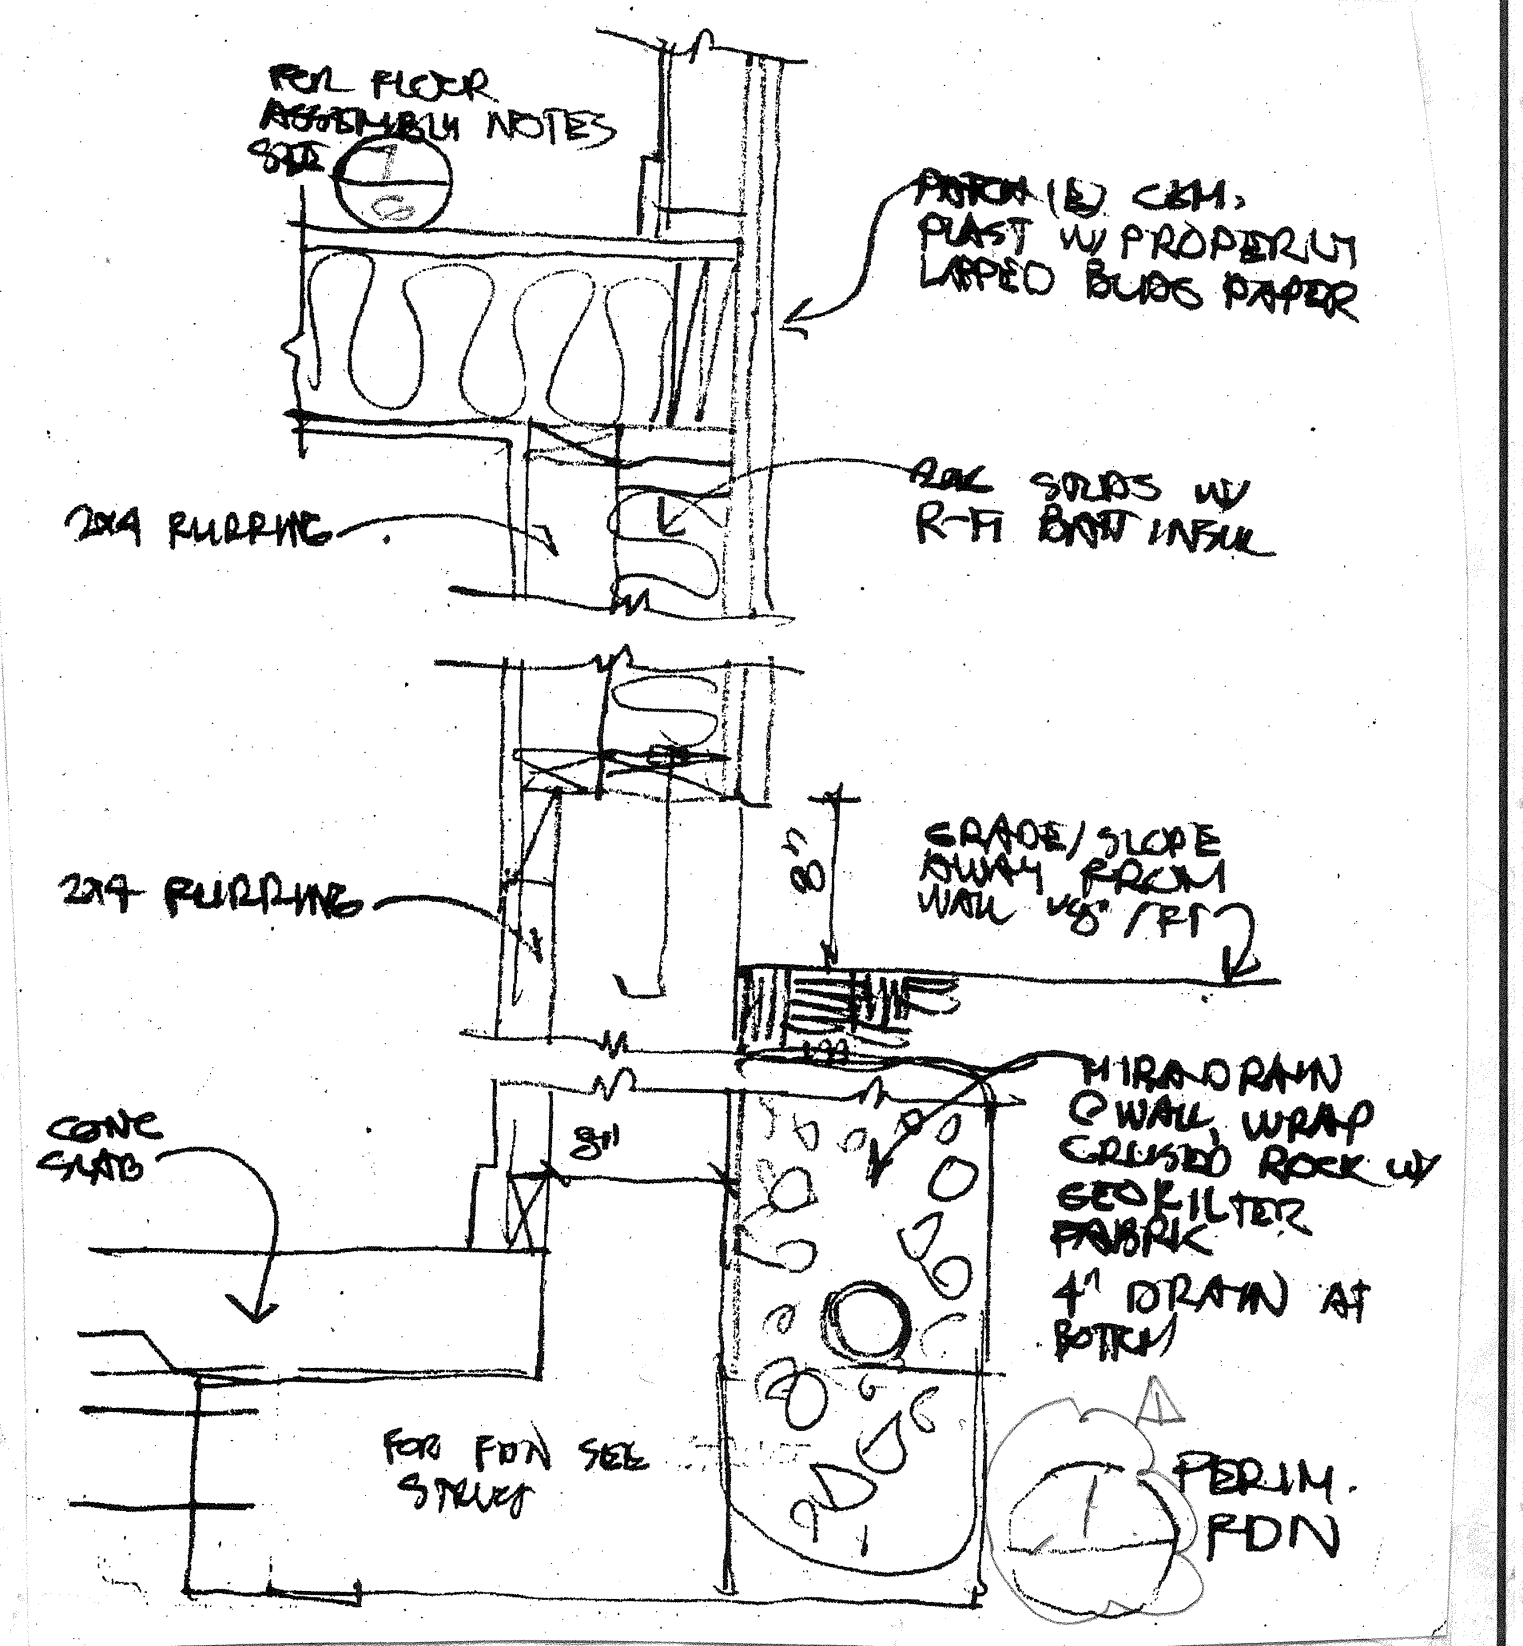 FOR FLOOR
ASSEMBLY NOTES
SEE 7
PATCH (E) CEM.
PLAST W/ PROPERLY
LAPPED BLDG PAPER
STUDS W/
BATT INSUL
2x4 FURRING
8"
GRADE/SLOPE
AWAY FROM
WALL 1/8" / FT
2x4 FURRING
MIRADRAIN
@ WALL, WRAP
CRUSED ROCK W/
GEOFILTER
FABRIC
4" DRAIN AT
BOTTM
CONC
SLAB
8"
FOR FDN SEE
STRUCT
1
PERIM.
FDN